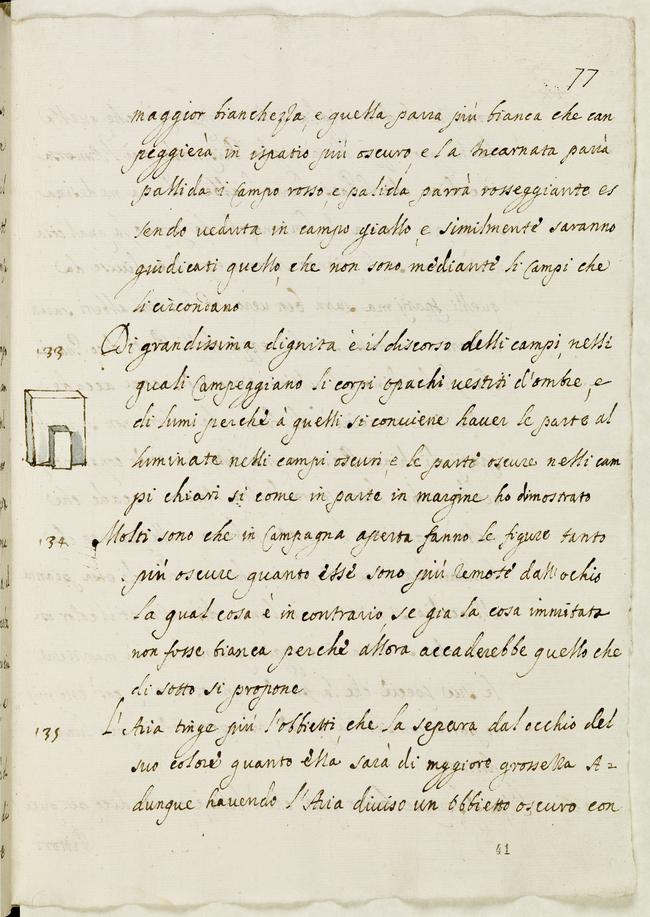 77
maggior bianchezza, e quella parra più bianca che can
peggierà in ispatio più oscuro, e la Incarnata parrà
pallida i Campo rosso, e palida parrà rosseggiante es
sendo veduta in campo giallo, e similmente saranno
giudicati quello, che non sono mediante li Campi che
li circondano
133 Di grandissima dignita è il discorso delli campi, nelli
quali Campeggiano li corpi opachi vestiti d'ombre, e
di lumi perchè à quelli si conviene haver le parte al
luminate nelli campi oscuri, e le parte oscure nelli cam
pi chiari si come in parte in margine ho dimostrato
134 Molti sono che in Campagna aperta fanno le figure tanto
più oscure quanto esse sono più remote dall'ochio
la qual cosa è in contrario, se gia la cosa immitata
non fosse bianca perchè allora accaderebbe quello che
di sotto si propone
135 L'Aria tinge più l'obbietti, che la separa dal occhio del
suo colore quanto ella sarà di maggiore grossezza A=
dunque havendo l'Aria diviso un obbietto oscuro con
41